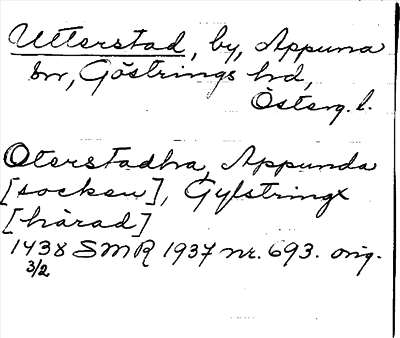 Utterstad, by, Appuna
sn, Göstrings hd,
Österg. l.
Oterstadha, Appunda
[socken], Gylstringx
[härad]
1438 SMR 1937 nr. 693. orig.
3/2